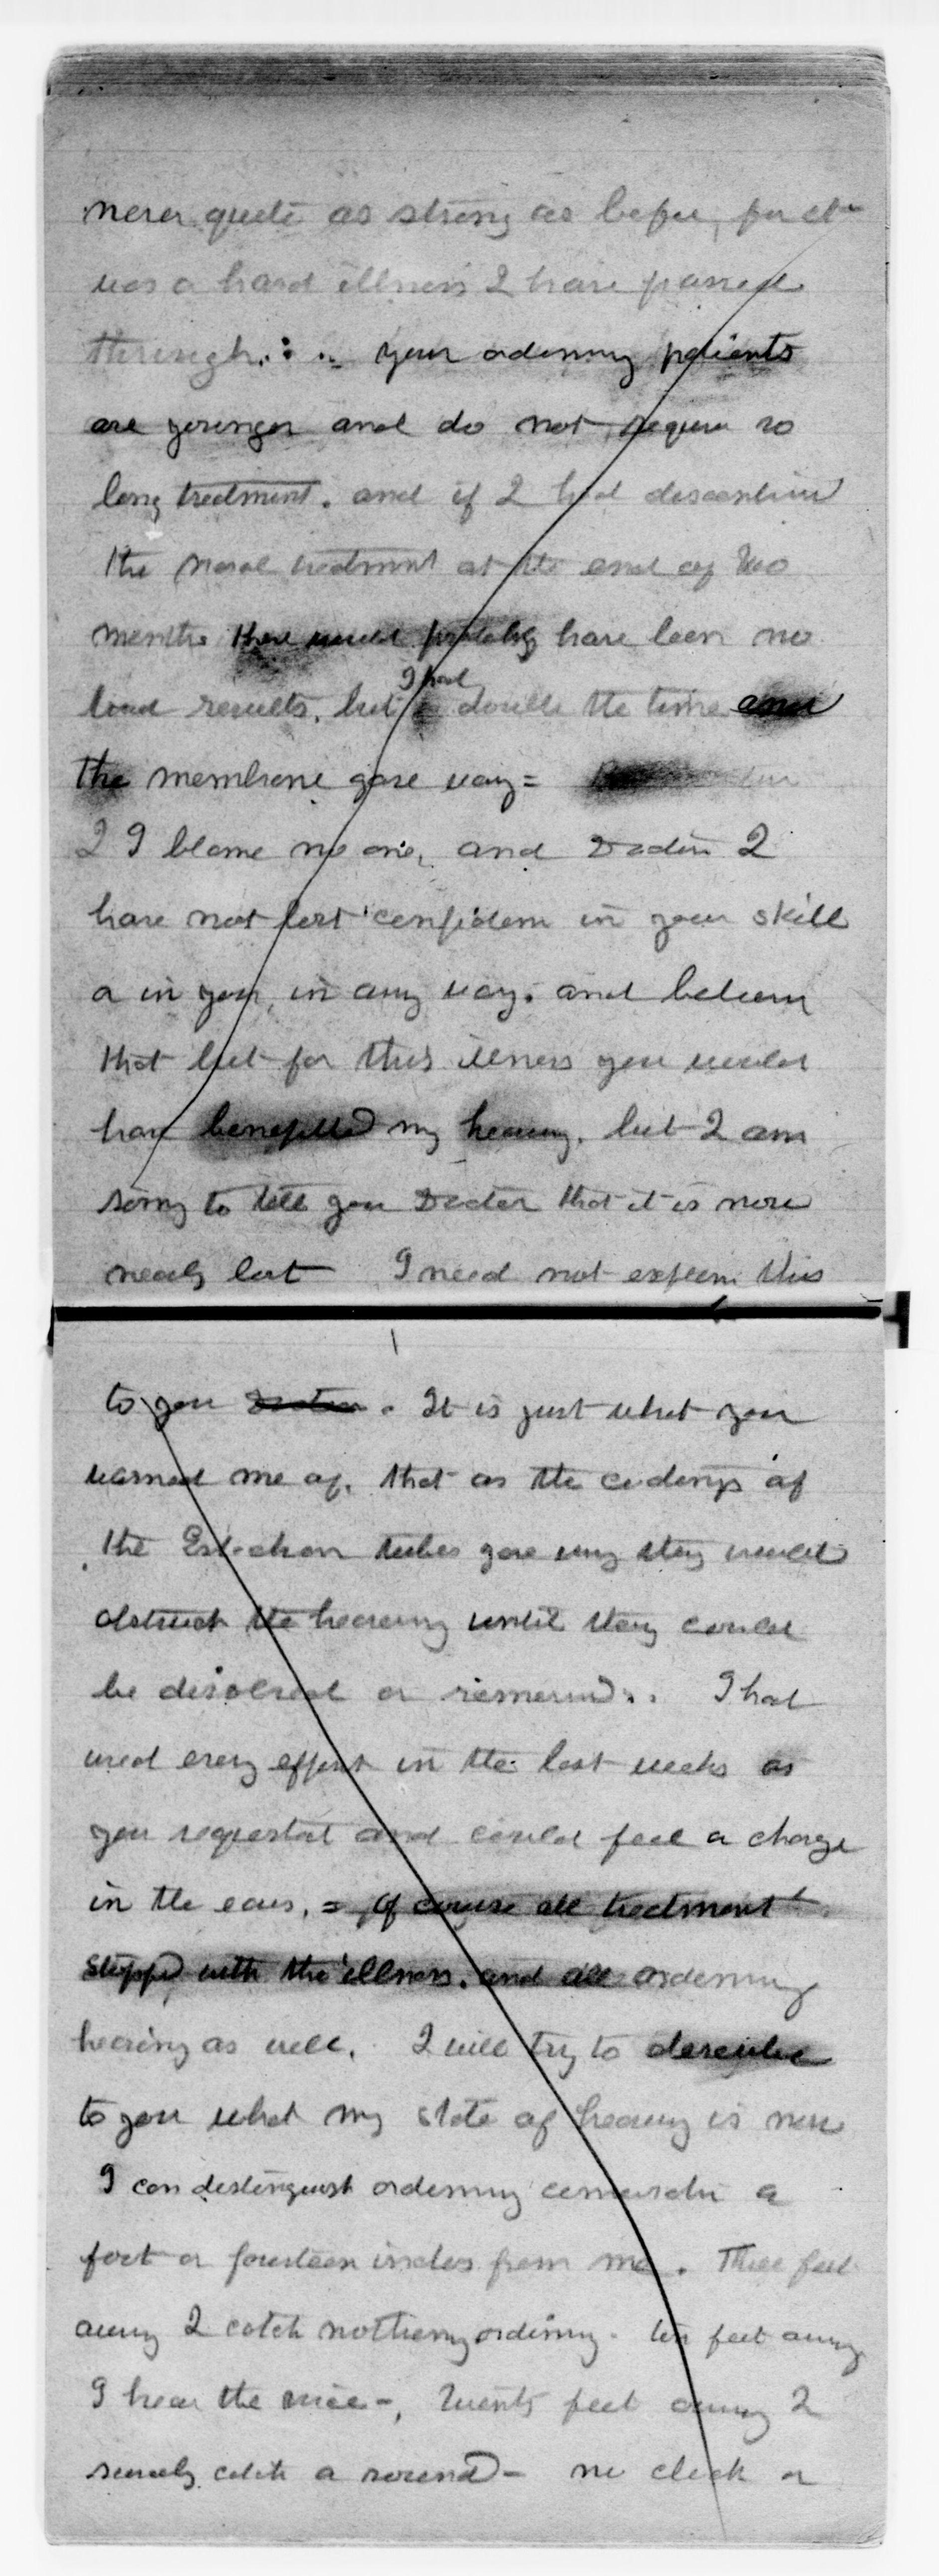 never quite as strong as before, for it
was a hard illness I have passed
through. : .. your ordinary patients
are younger and do not require so
long treatment. and if I had discontinud
the nasal treatment at the end of two
months there would probably have been no
bad results. but I had double the time and
the membrane gave way =
I I blame no one, and Doctor I
have not lost confidence in your skill
or in you, in any way. and believe
that but for this illness you would
have benefitted my hearing. but I am
sorry to tell you Doctor that it is now
nearly lost I need not explain this
to you Doctor. It is just what you
warned me of. that as the coatings of
the tubes gave way they would
obstruct the hearing until they could
be disolved or removed.. I had
used every effort in the last weeks as
you requested and could feel a change
in the ears. = Of course all treatment
stopped with the illness. and all ordinary
hearing as well. I will try to describe
to you what my state of hearing is now
I can distinguish ordinary a
foot or fourteen inches from me. Three feet
away I catch nothing ordinary. ten feet away
I hear the voice -, Twenty feet away I
scarcely catch a sound - no clock or